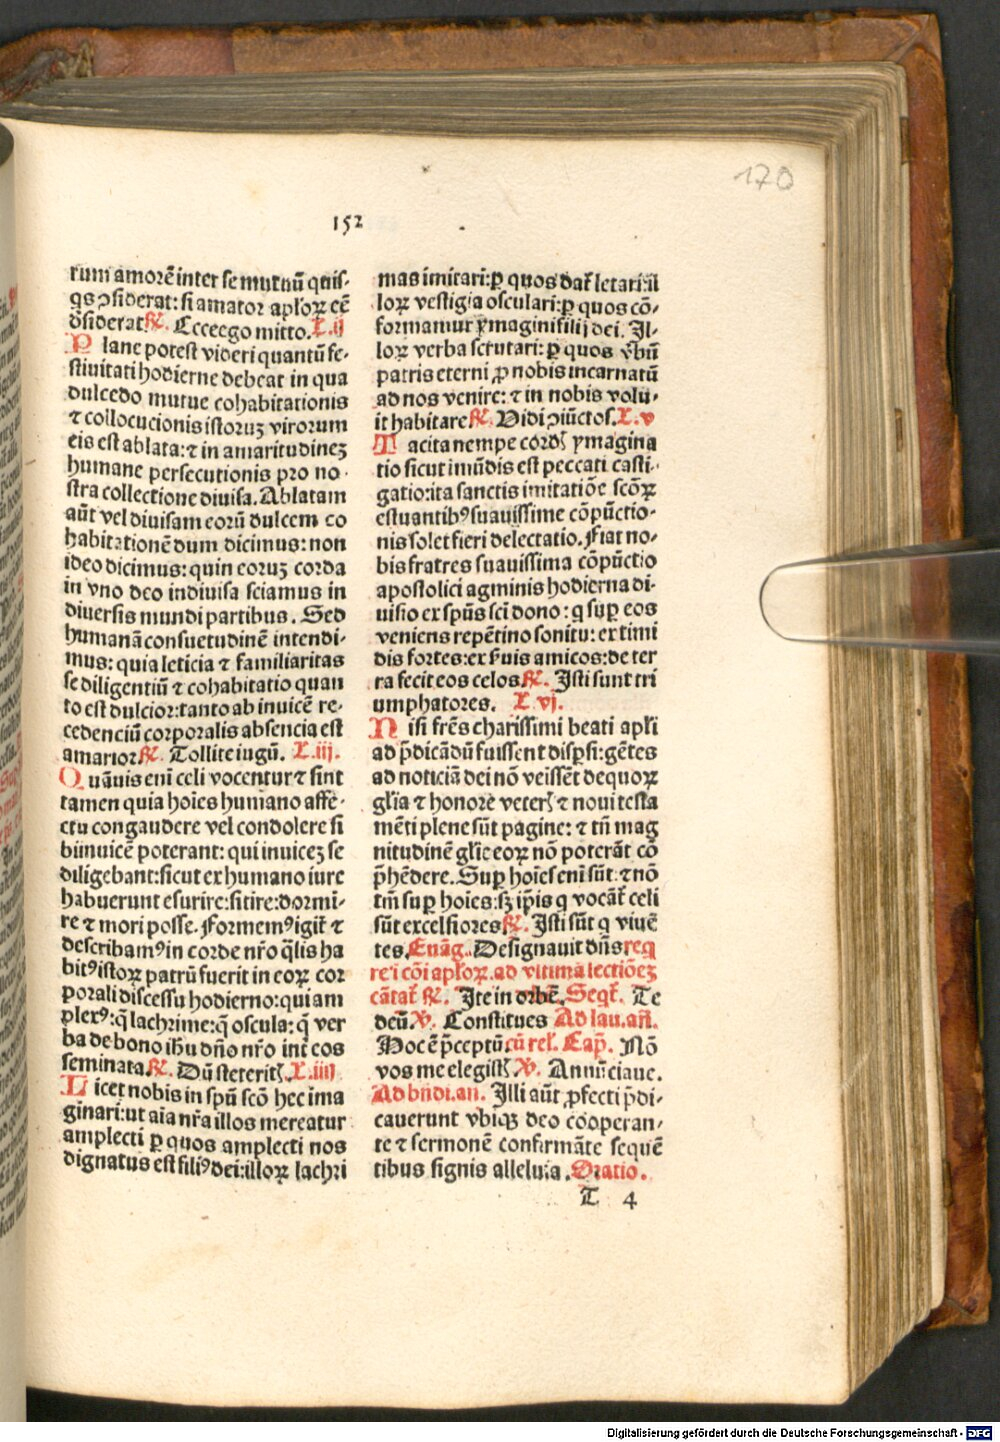 170
152
rum amorē inter se mutuū quis-
qs ꝯsiderat: si amator apl'oꝝ eē
dͥsiderat ℟. Ecce ego mitto. L. ij
Plane potest videri quantū fe-
stiuitati hodierne debeat in qua
dulcedo mutue cohabitationis
⁊ collocucionis istoruꝫ virorum
eis est ablata: ⁊ in amaritudineꝫ
humane persecutionis pro no-
stra collectione diuisa. Ablatam
aūt vel diuisam eorū dulcem co
habitationē dum dicimus: non
ideo dicimus: quin eoruꝫ corda
in vno deo indiuisa sciamus in
diuersis mundi partibus. Sed
humanā consuetudinē intendi-
mus: quia leticia ⁊ familiaritas
se diligentiū ⁊ cohabitatio quan
to est dulcior: tanto ab inuicē re-
cedenciū corporalis absencia est
amarior ℟. Tollite iugū. L. iij.
Quāuis eni celi vocentur ⁊ sint
tamen quia hoīes humano affe-
ctu congaudere vel condolere si
bi inuicē poterant: qui inuiceꝫ se
diligebant: sicut ex humano iure
habuerunt esurire: sitire: dormi-
re ⁊ mori posse. Formemꝰ igit̃ ⁊
describamꝰ in corde nr̄o q̄lis ha
bitꝰ istoꝝ patrū fuerit in eoꝝ cor
porali discessu hodierno: qui am
plexꝰ: q̄ lachrime: q̄ oscula: q̄ ver
ba de bono ihū dño nr̄o int̃ eos
seminata ℟. Dū steteritꝭ. L. iiij
Licet nobis in spū scō hec ima
ginari: ut aīa nr̄a illos mereatur
amplecti ꝑ quos amplecti nos
dignatus est filiꝰ dei: illoꝝ lachri
mas imitari: ꝑ quos dat̃ letari: il
loꝝ vestigia osculari: ꝑ quos cō-
formamur ymagini filij dei. Il-
loꝝ verba scrutari: ꝑ quos v̄bū
patris eterni ꝓ nobis incarnatū
ad nos venire: ⁊ in nobis volu-
it habitare ℟. Vidi ꝯiūctos. L. v
Tacita nempe cordꝭ ymagina
tio sicut imūdis est peccati casti-
gatio: ita sanctis imitatiōe scōꝝ
estuantibꝰ suauissime cōpūctio-
nis solet fieri delectatio. Fiat no-
bis fratres suauissima cōpūctio
apostolici agminis hodierna di-
uisio ex spūs sci dono: q suꝑ eos
veniens repētino sonitu: ex timi
dis fortes: ex suis amicos: de ter
ra fecit eos celos ℟. Isti sunt tri
umphatores. L. vj.
Nisi fr̄es charissimi beati apl'i
ad p̄dicādū fuissent disꝑsi: gētes
ad noticiā dei nō veissēt de quoꝝ
gl'ia ⁊ honore veterꝭ ⁊ noui testa
mēti plene sūt pagine: ⁊ tn̄ mag
nitudinē gl'ie eoꝝ nō poterāt cō
p̄hēdere. Suꝑ hoīes eni sūt: ⁊ nō
tm̄ suꝑ hoies: sꝫ ip̄is q vocāt̃ celi
sūt excelsiores ℟. Isti sūt q viuē
tes. Euāg. Designauit dn̄s req
re ī cōi apl'oꝝ. ad vltimā lectiōeꝫ
cātat̃ ℟. Ite in orbē. Seqt̃. Te
deū. ℣. Constitues Ad lau. añ.
Hoc ē p̄ceptū. cū rel'. Cap̄. Nō
vos me elegistꝭ ℣. Annūciaue.
Ad bn̄di. an. Illi aūt ꝓfecti p̄di-
cauerunt vbiqꝫ deo cooperan-
te ⁊ sermonē confirmāte sequē
tibus signis alleluia. Oratio.
T 4
Digitalisierung gefördert durch die Deutsche Forschungsgemeinschaft - DFG